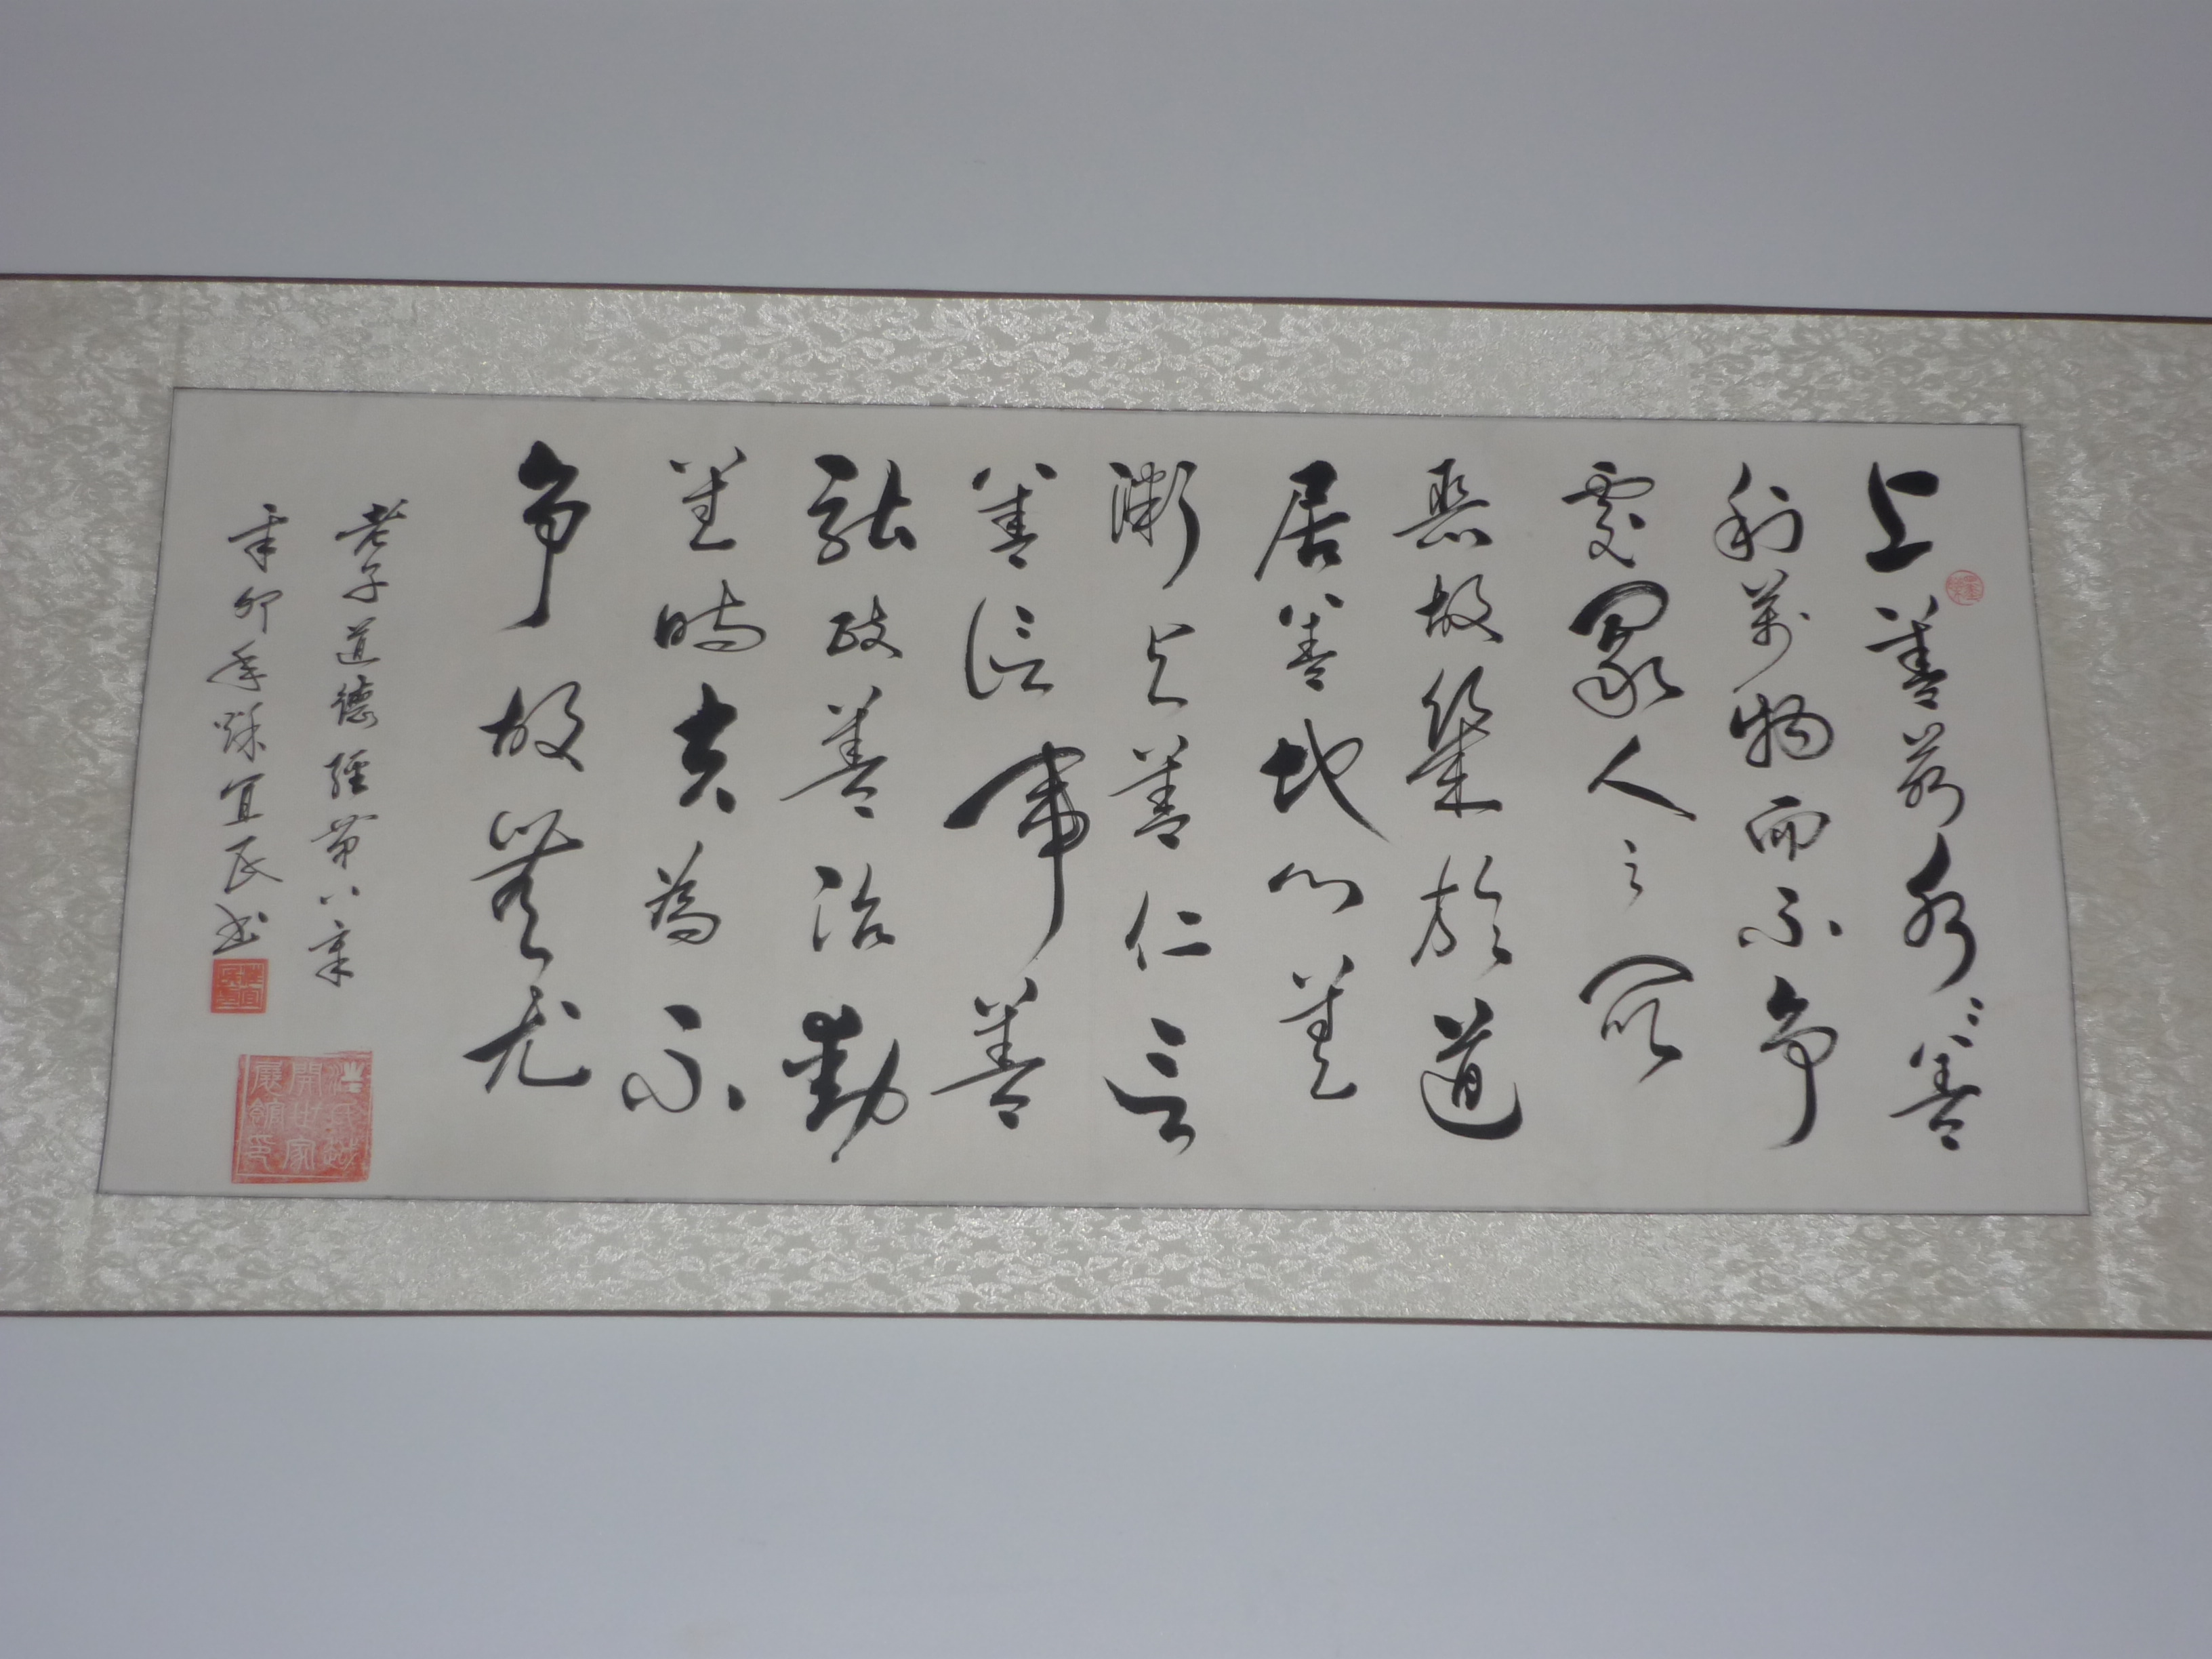 上善若水水善
利萬物而不争
處衆人之所
惡故幾於道
居善地心善
淵與善仁言
善信事善
能政善治動
善時夫為不
争故無尤
老子道德經第八章
辛卯年秋宜民书